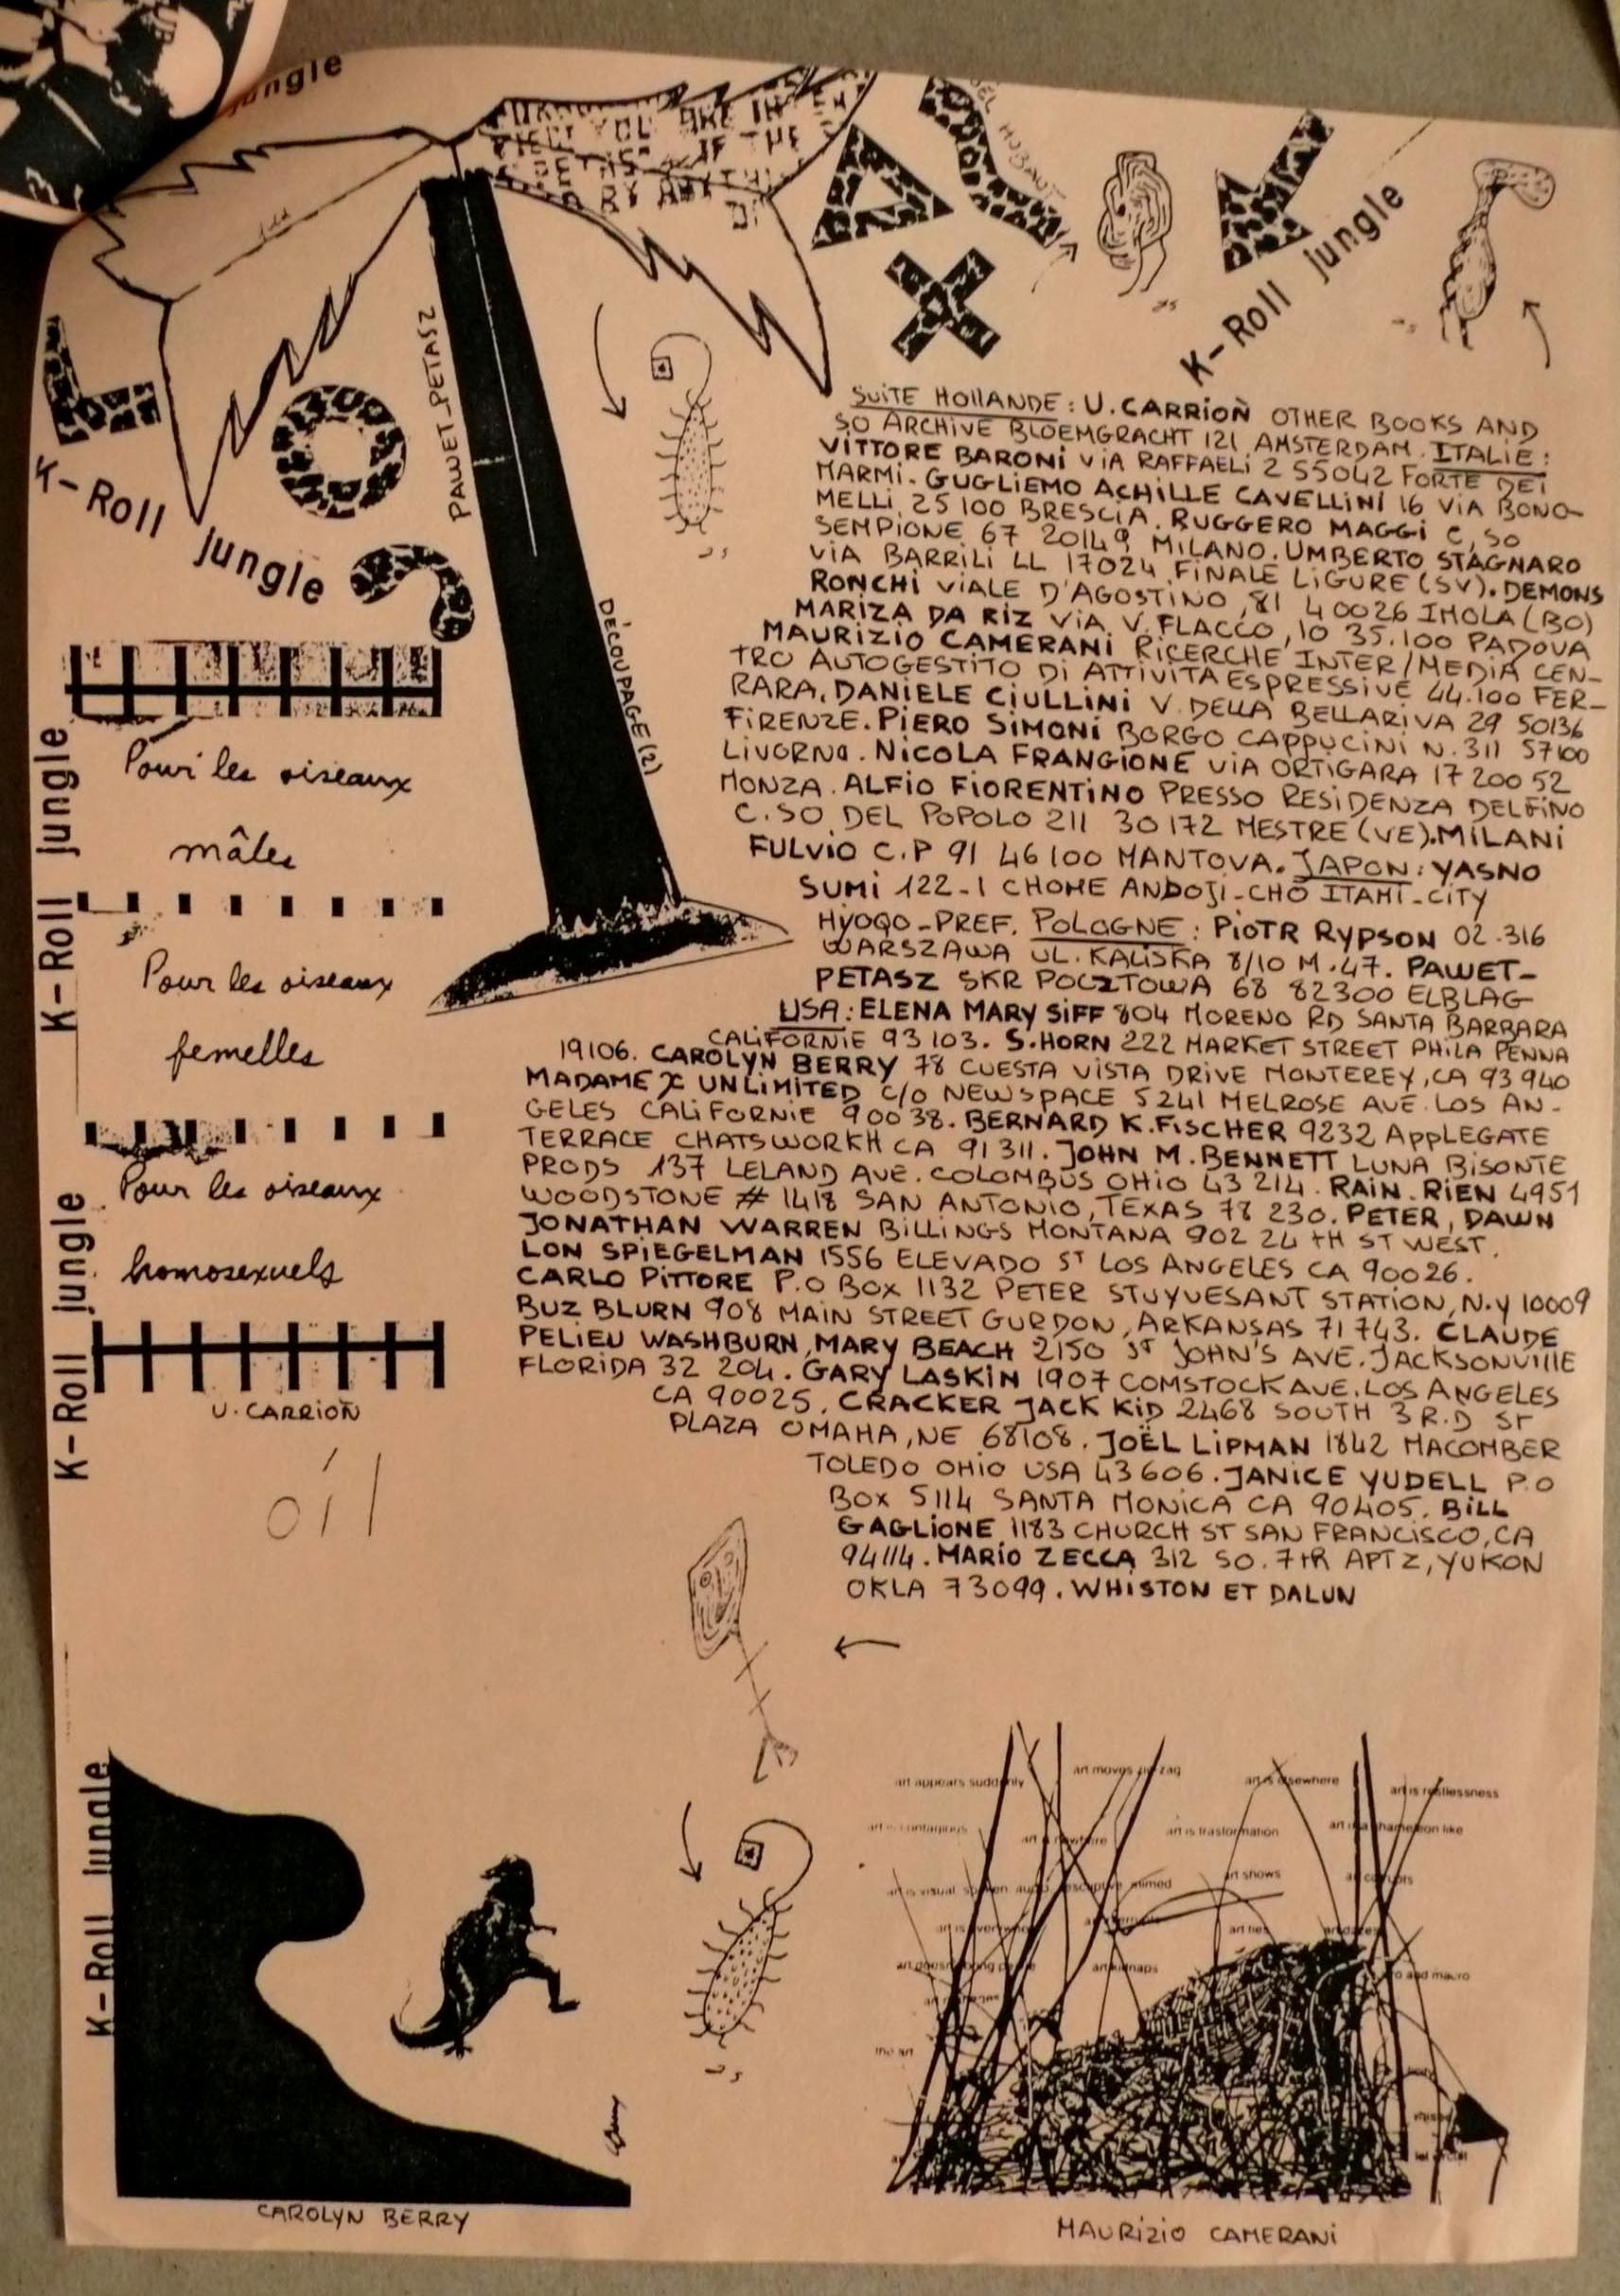 jungle
K-Roll jungle
K-Roll jungle
PAWET-PETASZ
DÉCOUPAGE (2)
SUiTE HOllANDE : U. CARRION OTHER BOOKS AND
SO ARCHiVE BLOEMGRACHT 121 AMSTERDAM. ITALIE :
ViTTORE BARONi ViA RAFFAELi 2 55042 FORTE DEi
MARMi. GUGLiEMO ACHiLLE CAVELLiNi 16 ViA BONO-
MELLi, 25 100 BRESCiA. RUGGERO MAGGi C, SO
SEMPIONE 67 20149 MiLANO. UMBERTO STAGNARO
ViA BARRiLi LL 17024 FiNALE LiGURE (SV). DEMONS
RONCHi ViALE D'AGOSTiNO, 81 40026 IMOLA (BO)
MARiZA DA RiZ ViA V. FLACCO, 10 35.100 PADOVA
MAURiZiO CAMERANi RiCERCHE INTER/MEDiA CEN-
TRO AUTOGESTiTO Di ATTiViTA ESPRESSiVE 44.100 FER-
RARA. DANiELE CiULLiNi V. DELLA BELLARiVA 29 50136
FiRENZE. PiERO SiMONi BORGO CAPPUCiNi N. 311 57100
LIVORNO. NiCOLA FRANGiONE ViA ORTiGARA 17 200 52
MONZA. ALFiO FiORENTiNO PRESSO RESiDENZA DELFiNO
C.SO DEL POPOLO 211 30172 MESTRE (VE). MiLANi
FULViO C.P 91 46100 MANTOVA. JAPON : YASNO
SUMi 122-1 CHOME ANDOJi-CHO ITAMI-CiTY
HYOGO-PREF. POLOGNE : PiOTR RYPSON 02.316
WARSZAWA UL. KALiSKA 8/10 M.47. PAWET-
PETASZ SKR POCZTOWA 68 82300 ELBLAG
USA : ELENA MARY SiFF 804 MORENO RD SANTA BARBARA
CALiFORNiE 93103. S. HORN 222 MARKET STREET PHiLA PENNA
19106. CAROLYN BERRY 78 CUESTA ViSTA DRiVE MONTEREY, CA 93940
MADAME X UNLiMiTED C/O NEWSPACE 5241 MELROSE AVE. LOS AN-
GELES CALiFORNiE 90038. BERNARD K. FiSCHER 9232 APPLEGATE
TERRACE CHATSWORKH CA 91311. JOHN M. BENNETT LUNA BiSONTE
PRODS 137 LELAND AVE. COLOMBUS OHiO 43214. RAiN. RiEN 4951
WOODSTONE # 1418 SAN ANTONiO, TEXAS 78 230. PETER, DAWN
JONATHAN WARREN BiLLiNGS MONTANA 902 24 tH ST WEST.
LON SPiEGELMAN 1556 ELEVADO ST LOS ANGELES CA 90026.
CARLO PiTTORE P.O BOX 1132 PETER STUYVESANT STATiON, N.Y 10009
BUZ BLURN 908 MAiN STREET GURDON, ARKANSAS 71743. CLAUDE
PELIEU WASHBURN, MARY BEACH 2150 ST JOHN'S AVE. JACKSONVIllE
FLORiDA 32 204. GARY LASKiN 1907 COMSTOCK AVE. LOS ANGELES
CA 90025. CRACKER JACK KiD 2468 SOUTH 3 R.D ST
PLAZA OMAHA, NE 68108. JOËL LiPMAN 1842 MACOMBER
TOLEDO OHiO USA 43606. JANiCE YUDELL P.O
BOX 5114 SANTA MONiCA CA 90405. BiLL
GAGLiONE 1183 CHURCH ST SAN FRANCiSCO, CA
94114. MARiO ZECCA 312 SO. 7tR APT Z, YUKON
OKLA 73099. WHiSTON ET DALUN
K-Roll jungle
Pour les oiseaux
mâles
Pour les oiseaux
femelles
K-Roll jungle
Pour les oiseaux
homosexuels
U. CARRION
K-Roll jungle
CAROLYN BERRY
art appears suddenly
art moves zig-zag
art is elsewhere
art is restlessness
art is contagious
art is nowhere
art is trasformation
art is a chameleon like
art shows
art corrupts
art lies
art kidnaps
the art
MAURiZiO CAMERANi